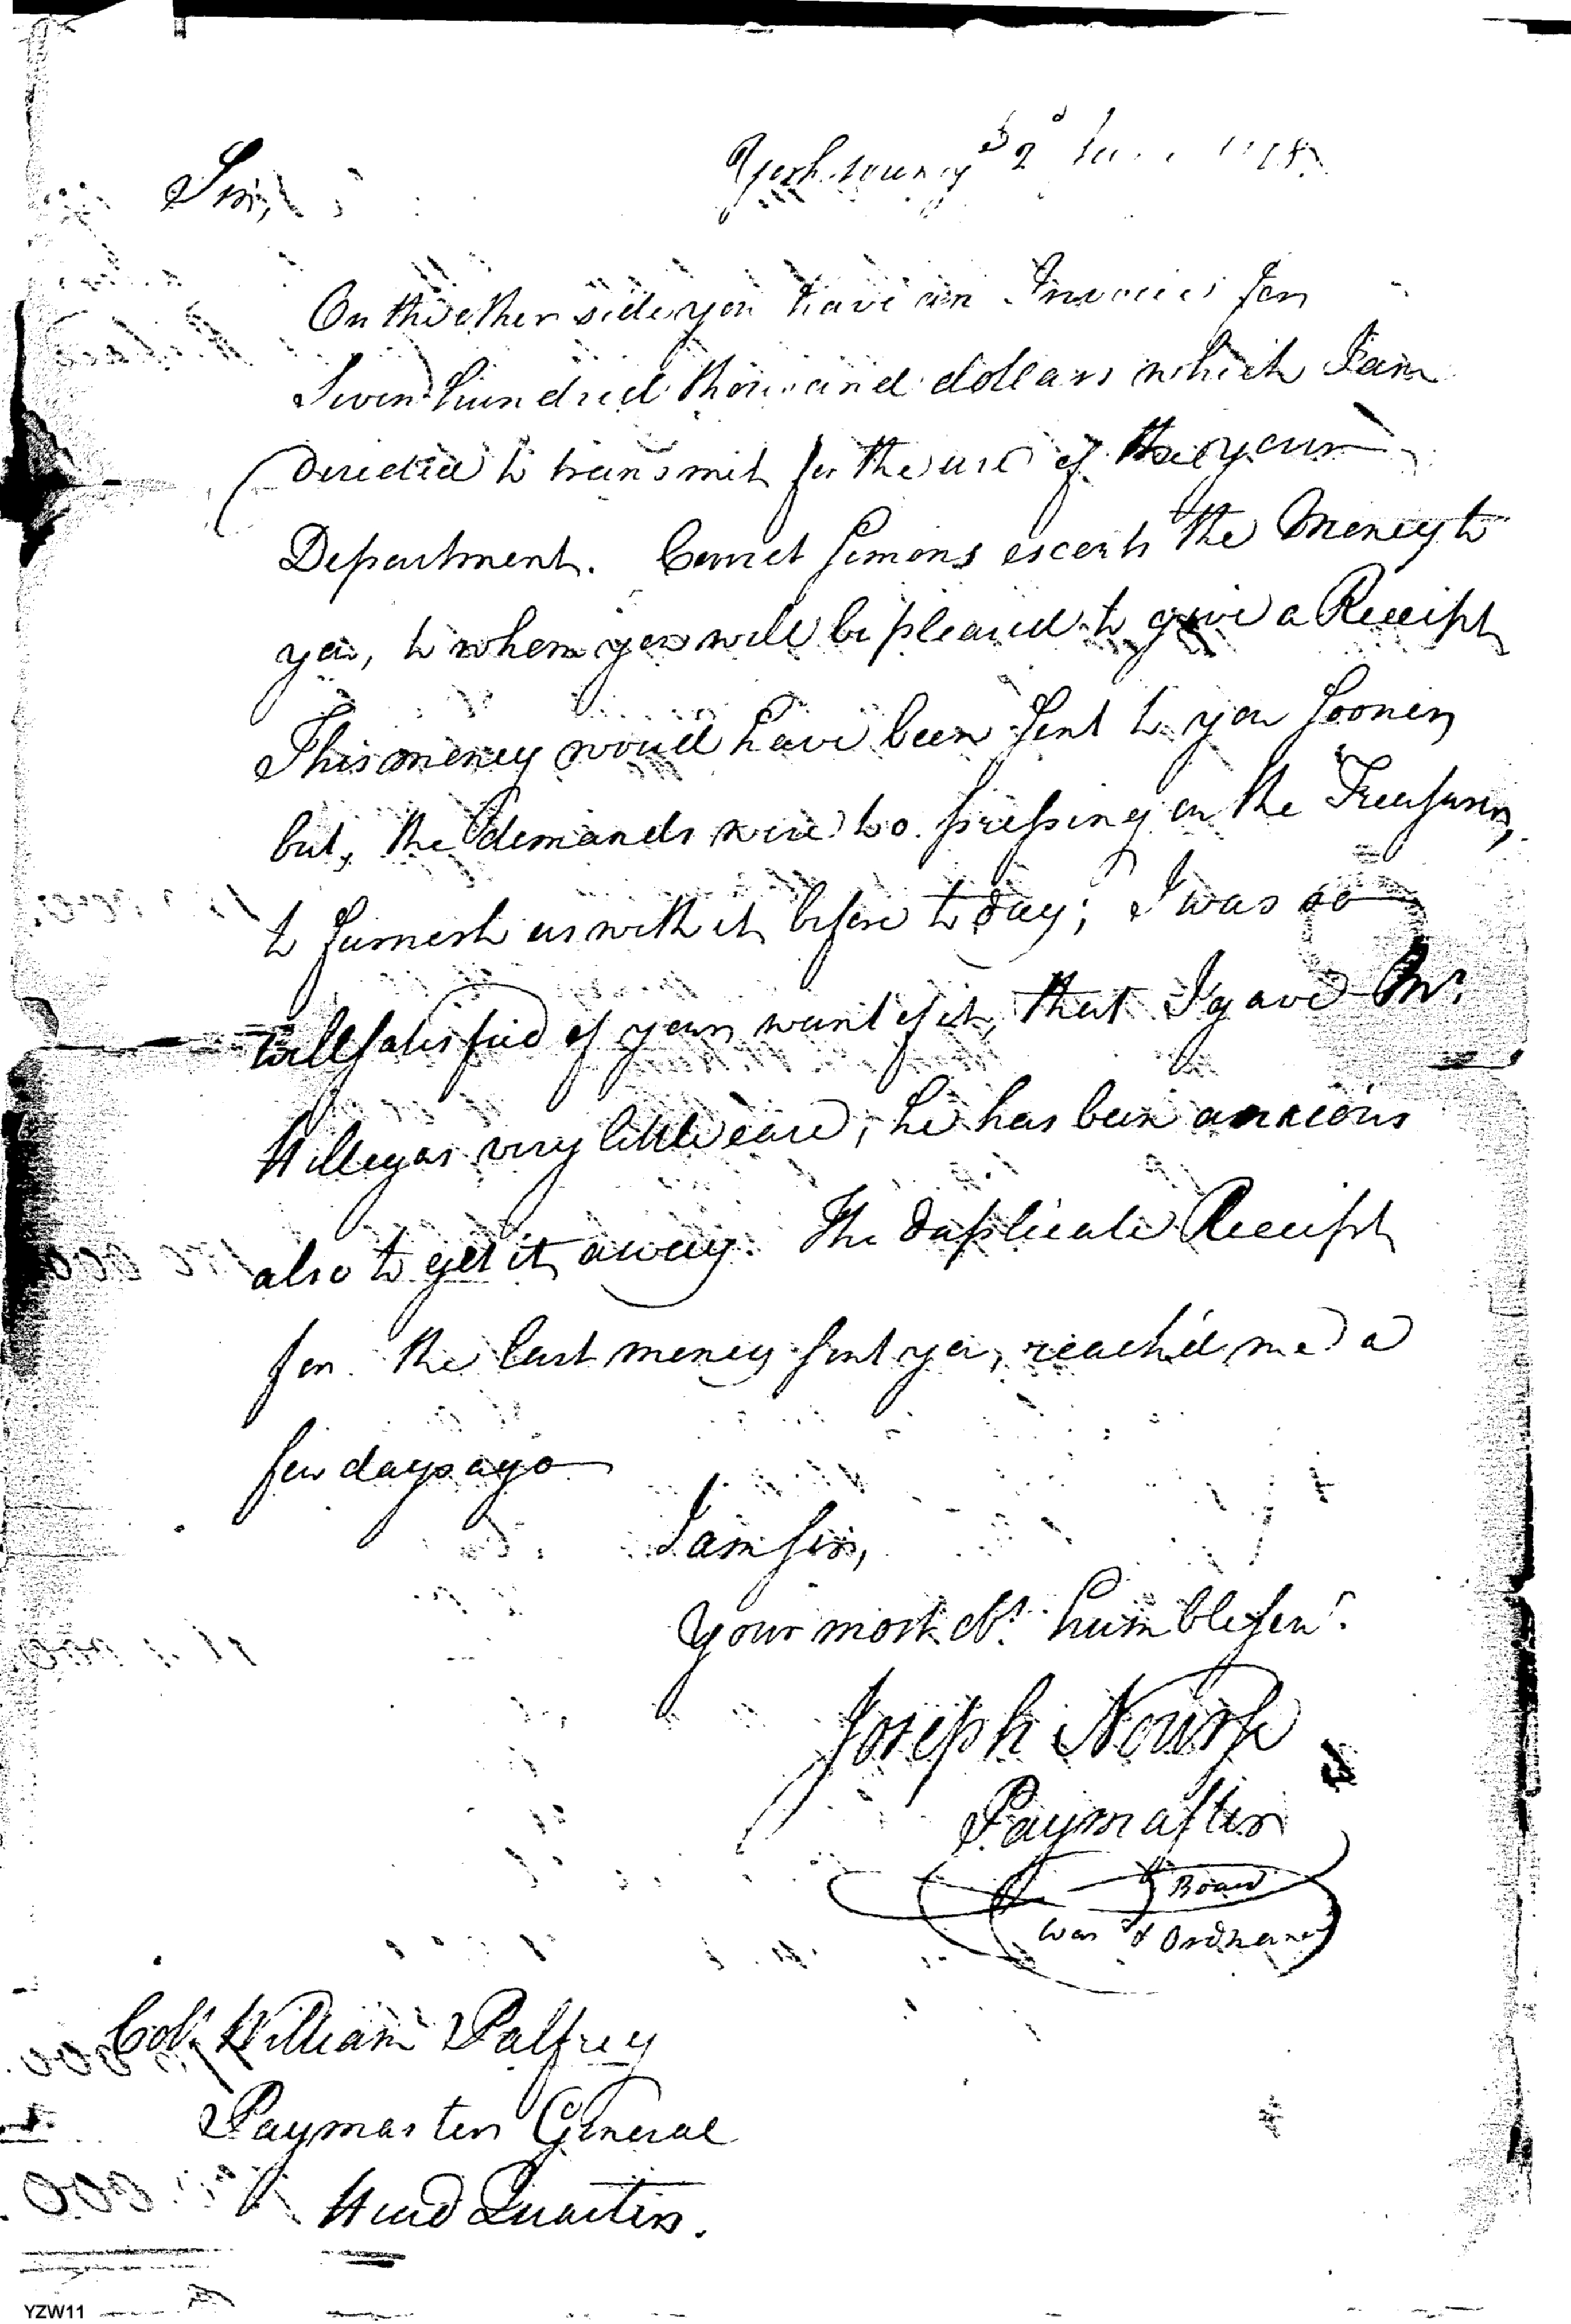 Sir,
On the other side you have an Invoice for
Seven hundred thousand dollars which I am
directed to transmit for the use of your
Department. Cornet Simons escorts the Money to
you, to whom you will be pleased to give a Receipt
This money would have been sent to you sooner
but, the demands were too pressing on the Treasurer,
to furnish us with it before to day; I was so
well satisfied of your want of it, that I gave Mr.
Hillegas very little ease; he has been anxious
also to get it away. The duplicate Receipt
for the last money sent you, reach'd me a
few days ago
I am sir,
Your most obt. humble servt.
Joseph Nourse
Paymaster
Board
War & Ordnance
Col. William Palfrey
Paymaster General
Head Quarters.
YZW11